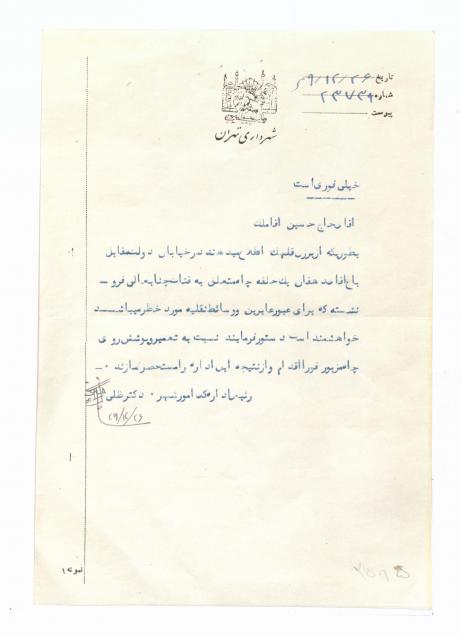 تاریخ ۲۶/۱۲/۹
شماره ۲۳۷۳۸
پیوست
شهرداری تهران
خیلی فوری است
آقای حاج حسین آقا ملک
بطوریکه از برزن قلهک اطلاع میدهند در خیابان دولت مقابل
باغ آقای دهقان یک حلقه چاه متعلق به قنات جنابعالی فرو -
نشسته که برای عبور عابرین و وسائط نقلیه مورد خطر میباشد
خواهشمند است دستور فرمایند نسبت به تعمیر و پوشش روی
چاه مزبور فورا اقدام و از نتیجه این اداره را مستحضر سازند ۰ -
رئیس اداره کد امور شهر ۰ دکتر
نمونه ۱